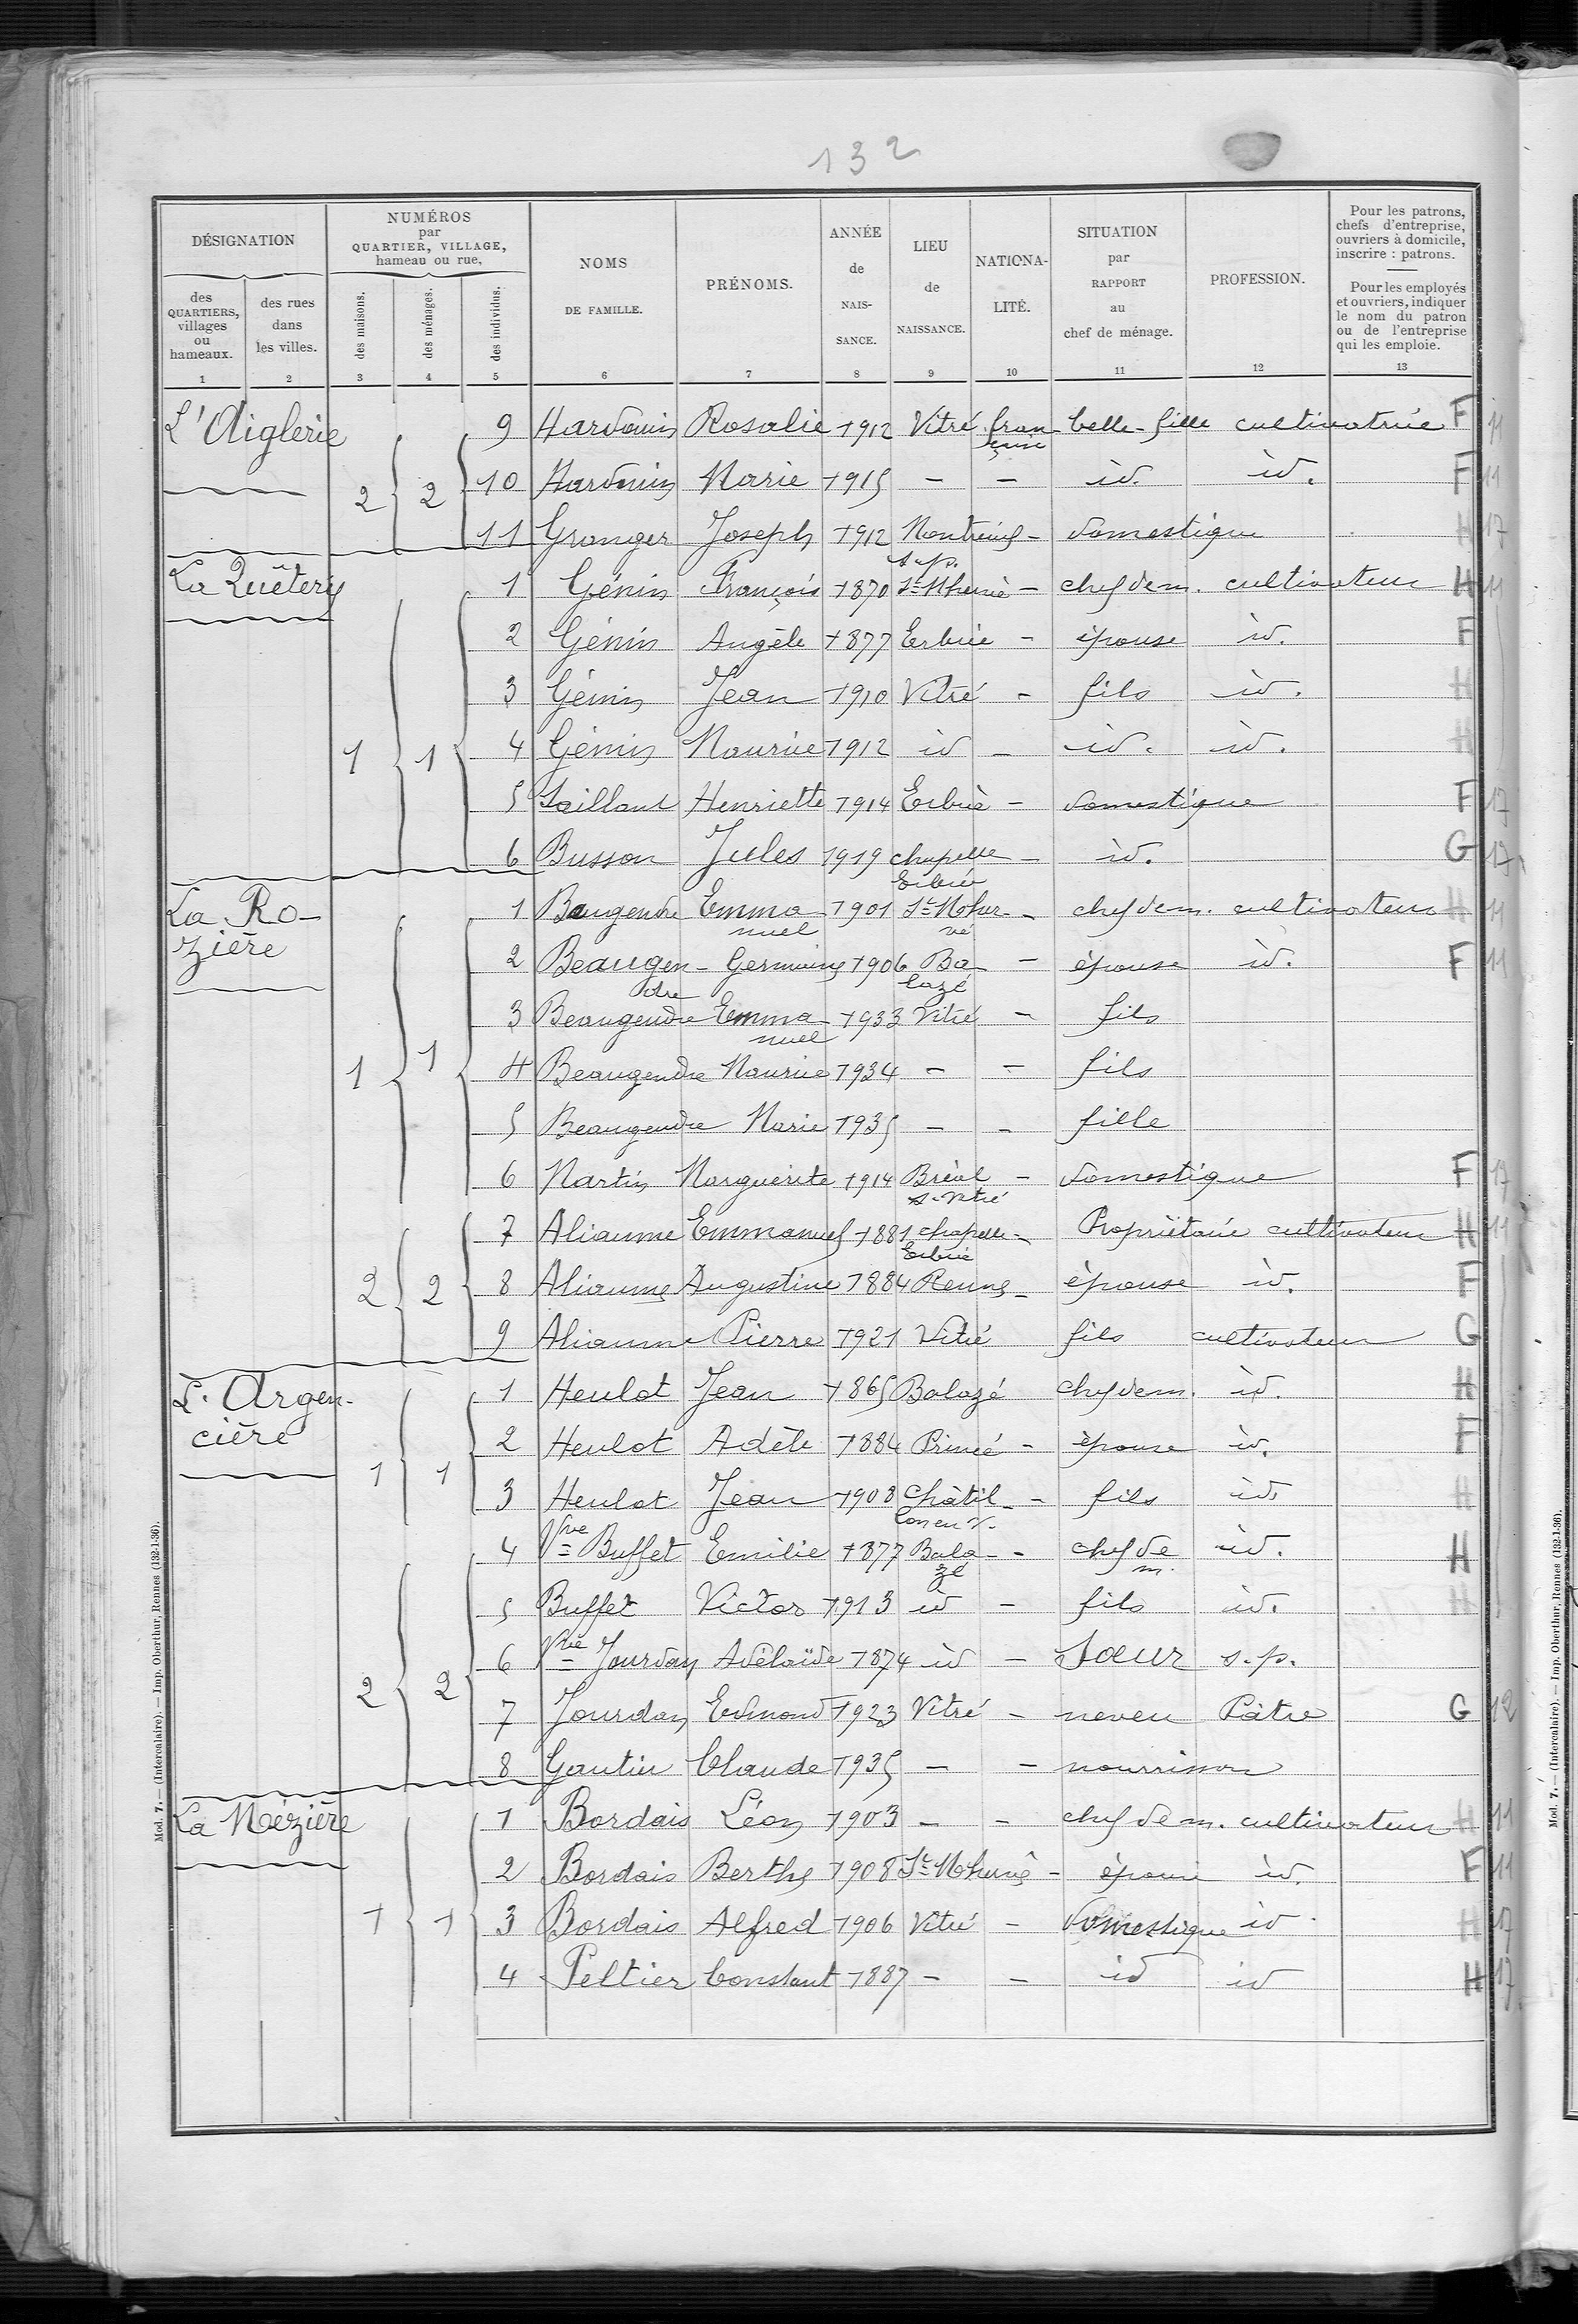 132
DÉSIGNATION
des QUARTIERS, villages ou hameaux.
des rues dans les villes.
NUMÉROS par QUARTIER, VILLAGE, hameau ou rue,
des maisons.
des ménages.
des individus.
NOMS DE FAMILLE.
PRÉNOMS.
ANNÉE de NAIS-SANCE.
LIEU de NAISSANCE.
NATIONA-LITÉ.
SITUATION par RAPPORT au chef de ménage.
PROFESSION.
Pour les patrons, chefs d'entreprise, ouvriers à domicile, inscrire : patrons.
Pour les employés et ouvriers, indiquer le nom du patron ou de l'entreprise qui les emploie.
1 2 3 4 5 6 7 8 9 10 11 12 13
L'Aiglerie 9 Hardouin Rosalie 1912 Vitré française belle-fille cultivatrice F 11
2 2 10 Hardouin Marie 1915 - - id. id. F 11
11 Granger Joseph 1912 Montreuil s/p. - domestique H 17
La Quêtery 1 Génin François 1870 St-Mhervé - chef de m. cultivateur H 11
2 Génin Angèle 1877 Erbrée - épouse id. F
3 Génin Jean 1910 Vitré - fils id. H
1 1 4 Génin Maurice 1912 id - id. id. H
5 Saillant Henriette 1914 Erbrée - domestique F 17
6 Busson Jules 1919 chapelle Erbrée - id. G 17
La Ro-zière 1 Baugendre Emma-nuel 1901 St-Mher-vé - chef de m. cultivateur H 11
2 Beaugen-dre Germaine 1906 Ba-lazé - épouse id. F 11
3 Beaugendre Emma-nuel 1933 Vitré - fils
1 1 4 Beaugendre Maurice 1934 - - fils
5 Beaugendre Marie 1935 - - fille
6 Martin Marguerite 1914 Bréal s. Vitré - domestique F 17
7 Aliaume Emmanuel 1881 chapelle Erbrée - Propriétaire cultivateur H 11
2 2 8 Aliaume Augustine 1884 Rennes - épouse id. F
9 Aliaume Pierre 1921 Vitré fils cultivateur G
L'Argen-cière 1 Heulot Jean 1865 Balazé chef de m. id. H
2 Heulot Adèle 1884 Princé - épouse id. F
1 1 3 Heulot Jean 1908 Châtil-lon en V. - fils id. H
4 Vve Buffet Emilie 1877 Bala-zé - chef de m. id. H
5 Buffet Victor 1913 id - fils id. H
6 Vve Jourdan Adélaïde 1874 id - Sœur s.p.
2 2 7 Jourdan Edmond 1923 Vitré - neveu Pâtre G 12
8 Gautier Claude 1935 - - nourrisson
La Mézière 1 Bordais Léon 1903 - - chef de m. cultivateur H 11
2 Bordais Berthe 1908 St-Mhervé - épouse id. F 11
1 1 3 Bordais Alfred 1906 Vitré - domestique id. H 17
4 Peltier Constant 1887 - - id id H 17
Mod. 7. — (Intercalaire). — Imp. Oberthur, Rennes (132-1-36).
Mod. 7. — (Intercalaire). — Imp. Oberthur, Rennes (132-1-36).